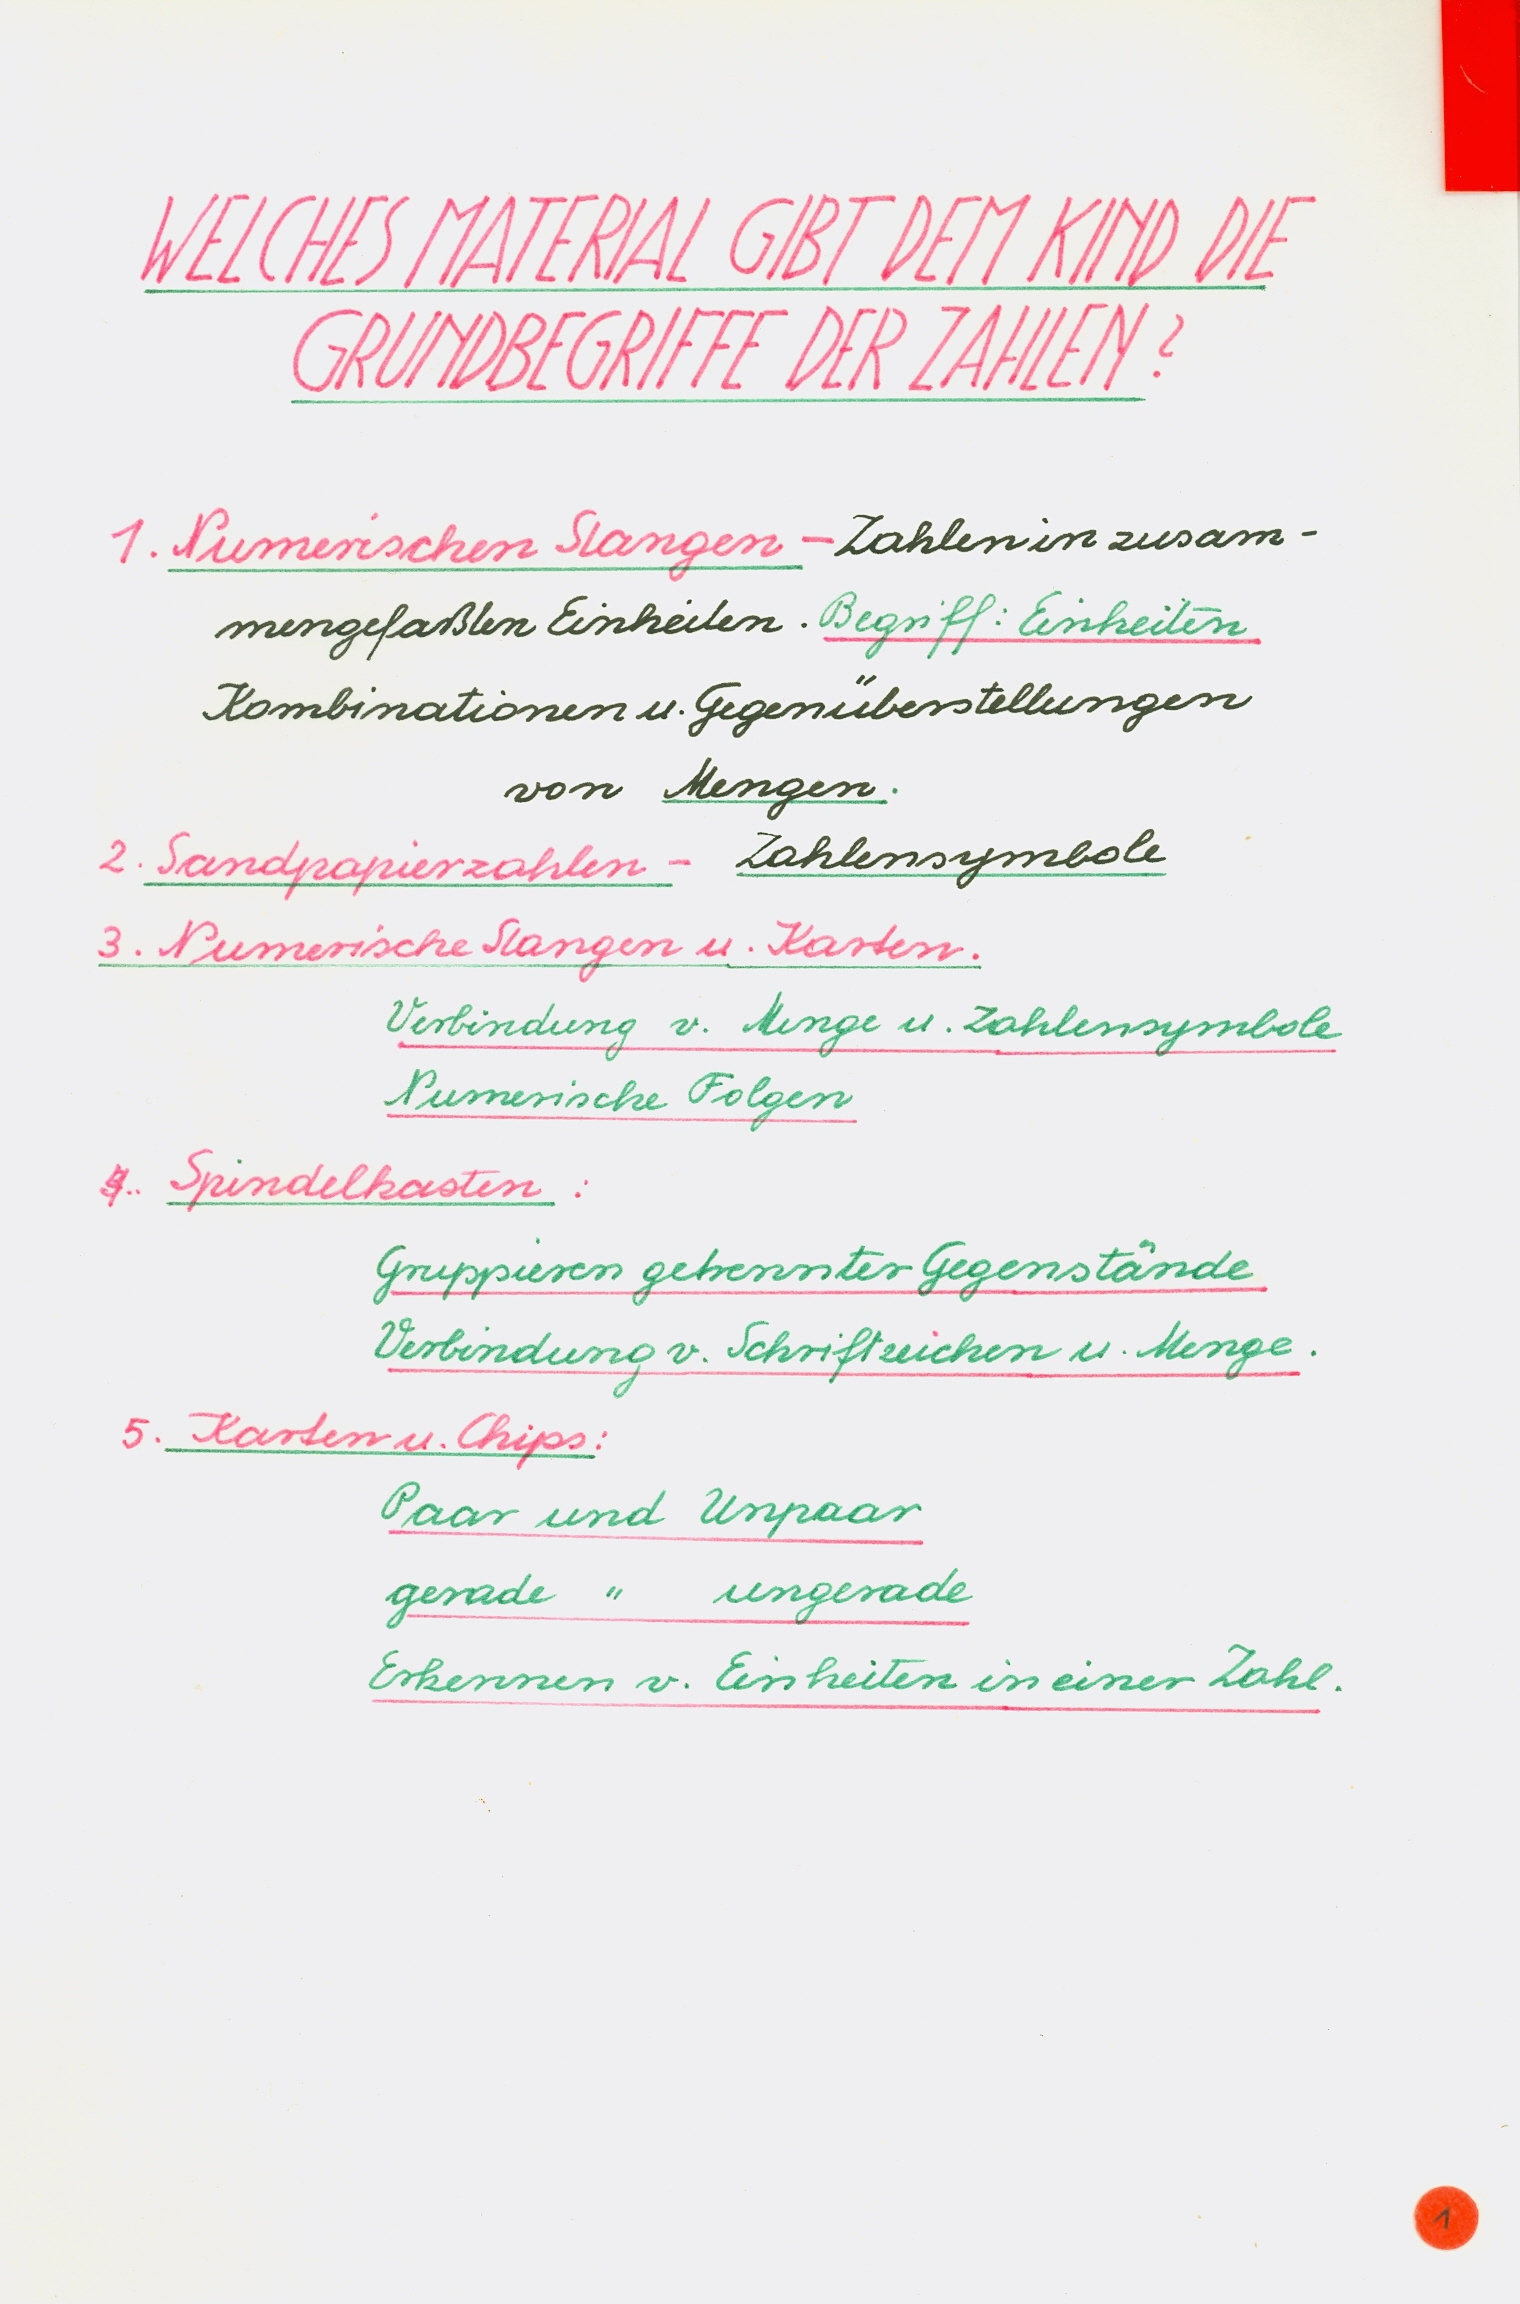 WELCHES MATERIAL GIBT DEM KIND DIE
GRUNDBEGRIFFE DER ZAHLEN?
1. Numerischen Stangen – Zahlen in zusam-
mengefaßten Einheiten. Begriff: Einheiten
Kombinationen u. Gegenüberstellungen
von Mengen.
2. Sandpapierzahlen – Zahlensymbole
3. Numerische Stangen u. Karten.
Verbindung v. Menge u. Zahlensymbole
Numerische Folgen
4. Spindelkasten :
Gruppieren getrennter Gegenstände
Verbindung v. Schriftzeichen u. Menge.
5. Karten u. Chips:
Paar und Unpaar
gerade " ungerade
Erkennen v. Einheiten in einer Zahl.
1